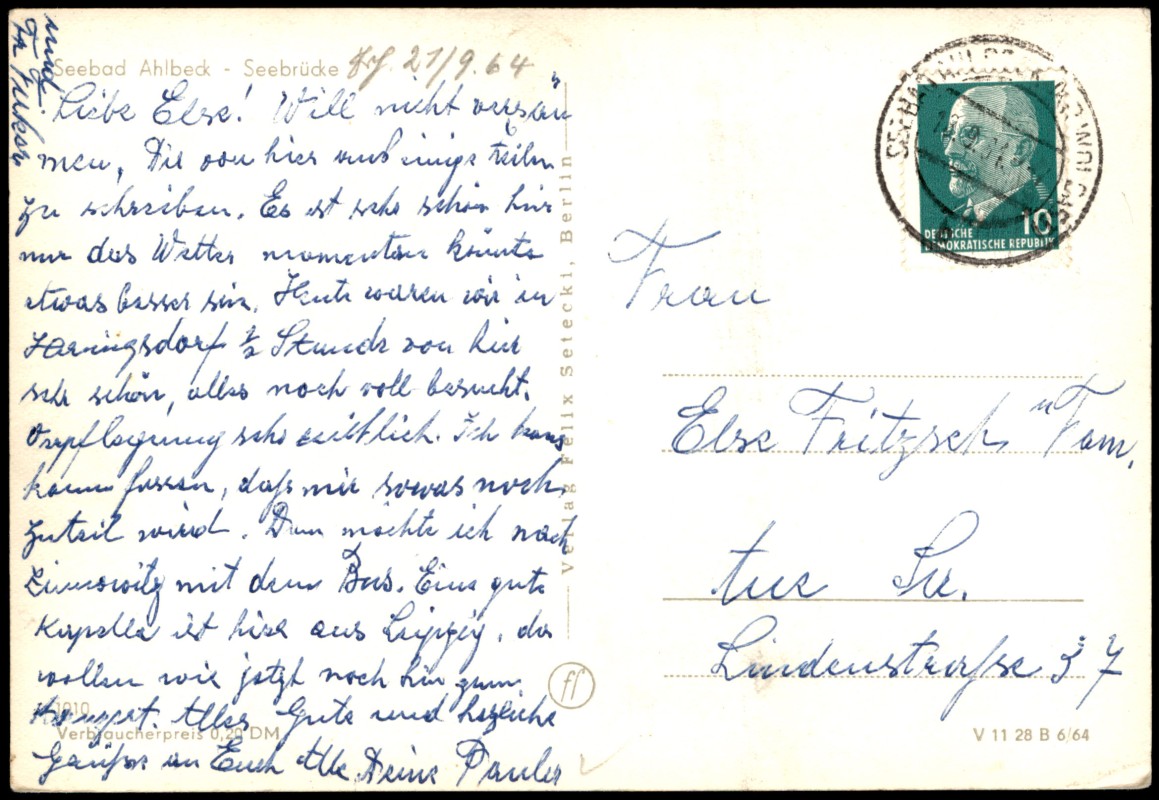 Seebad Ahlbeck - Seebrücke 21/9.64
Liebe Else! Will nicht versäu
men, Dir von hier aus einige Zeilen
zu schreiben. Es ist sehr schön hier
nur das Wetter momentan könnte
etwas besser sein. Heute waren wir in
Heringsdorf ½ Stunde von hier
sehr schön, alles noch voll besucht.
Verpflegung sehr reichlich. Ich kann
kaum fassen, daß mir sowas noch
zuteil wird. Dann möchte ich nach
Zinnowitz mit dem Bus. Eine gute
Kapelle ist hier aus Leipzig, da
wollen wir jetzt noch hin zum
Konzert. Alles Gute und herzliche
Grüße an Euch Alle Deine Paula
und
1910
Verbraucherpreis 0,20 DM
Verlag Felix Setecki, Berlin
ff
10
DEUTSCHE
DEMOKRATISCHE REPUBLIK
Frau
Else Fritzsch u Fam.
Aue Sa.
Lindenstraße 37
V 11 28 B 6/64